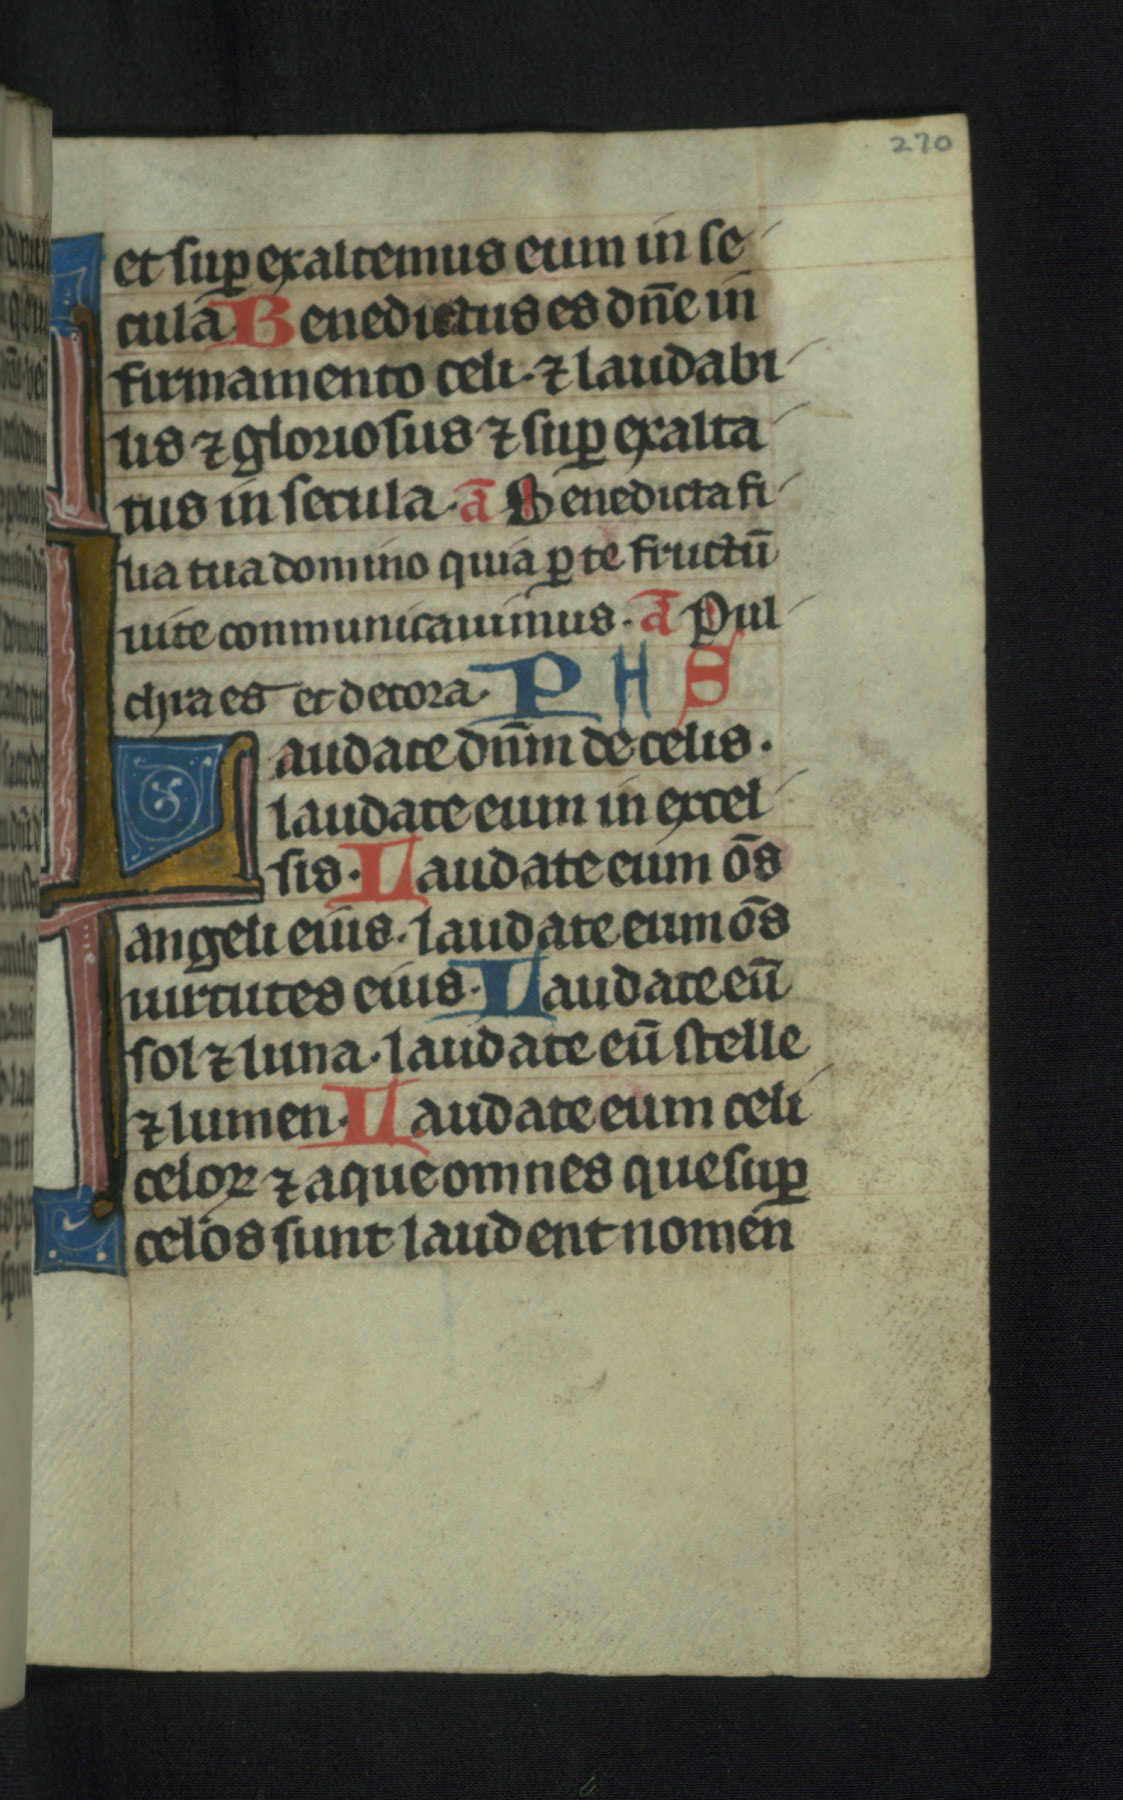 270
et sup exaltemus eum in se
cula Benedictus es dn̄e in
firmamento celi · ⁊ laudabi
lis ⁊ gloriosus ⁊ sup exalta
tus in secula · ā Benedicta fi
lia tua domino quia p te fructū
uite conmunicauimus · ā Pul
chra es et decora · P H S
Laudate dn̄m de celis ·
laudate eum in excel
sis · Laudate eum ōs
angeli eius · laudate eum ōs
uirtutes eius · Laudate eū
sol ⁊ luna · laudate eū stelle
⁊ lumen · Laudate eum celi
celoꝝ ⁊ aque omnes que sup
celos sunt laudent nomen